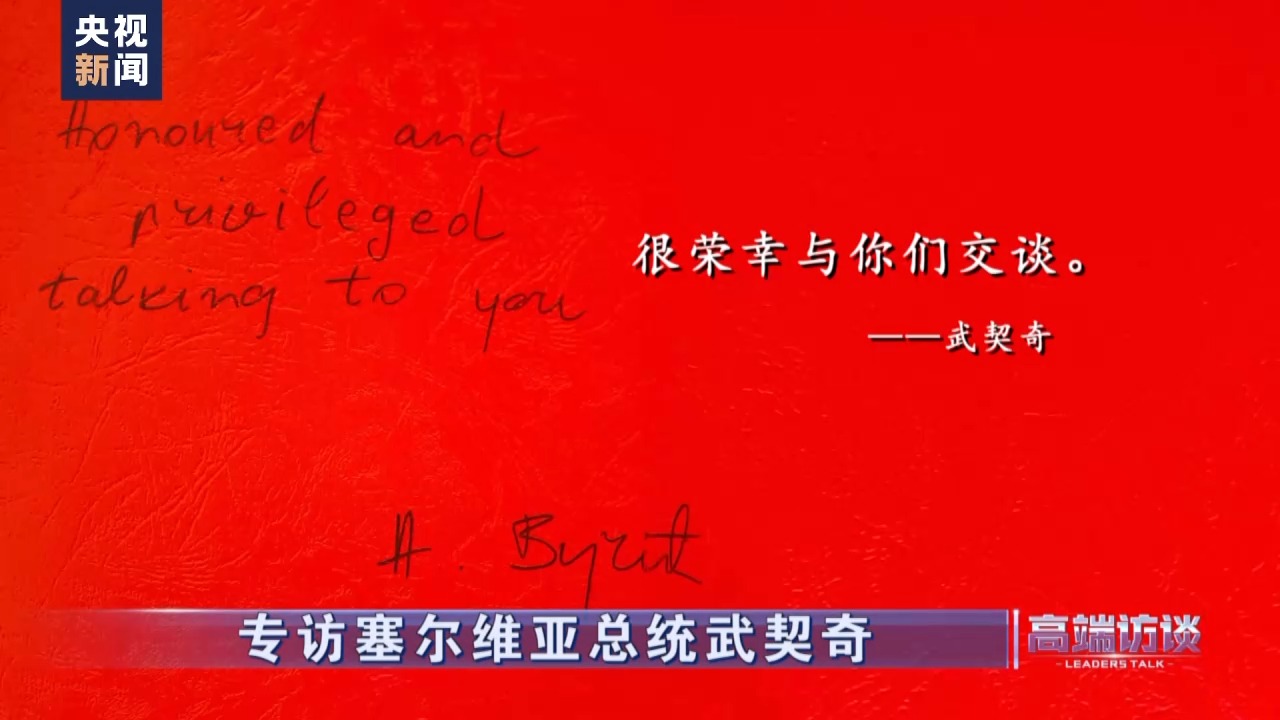 央视
新闻
Honoured and
privileged
talking to you
很荣幸与你们交谈。
——武契奇
А. Вучић
专访塞尔维亚总统武契奇
高端访谈
LEADERS TALK